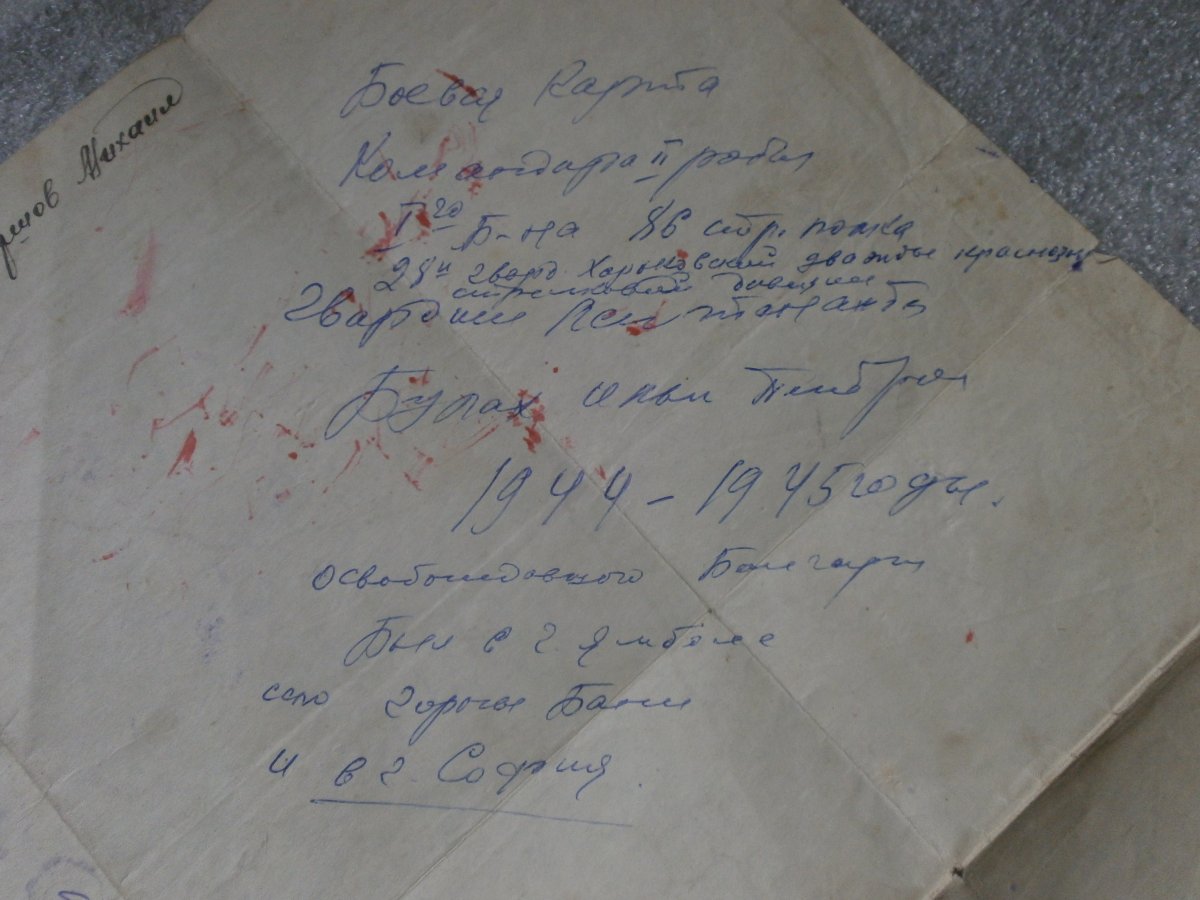 Михаил
Боевая Карта
Командира II роты
I го Б-на 86 стр. полка
28й гвард. Харьковский дважды красноз
стрелковый дивизии
Гвардии Лейтенанта
Булах
1944 – 1945 годы.
освободившего Болгари
Был в г. Ямболе
село Горны Бани
и в г. София.